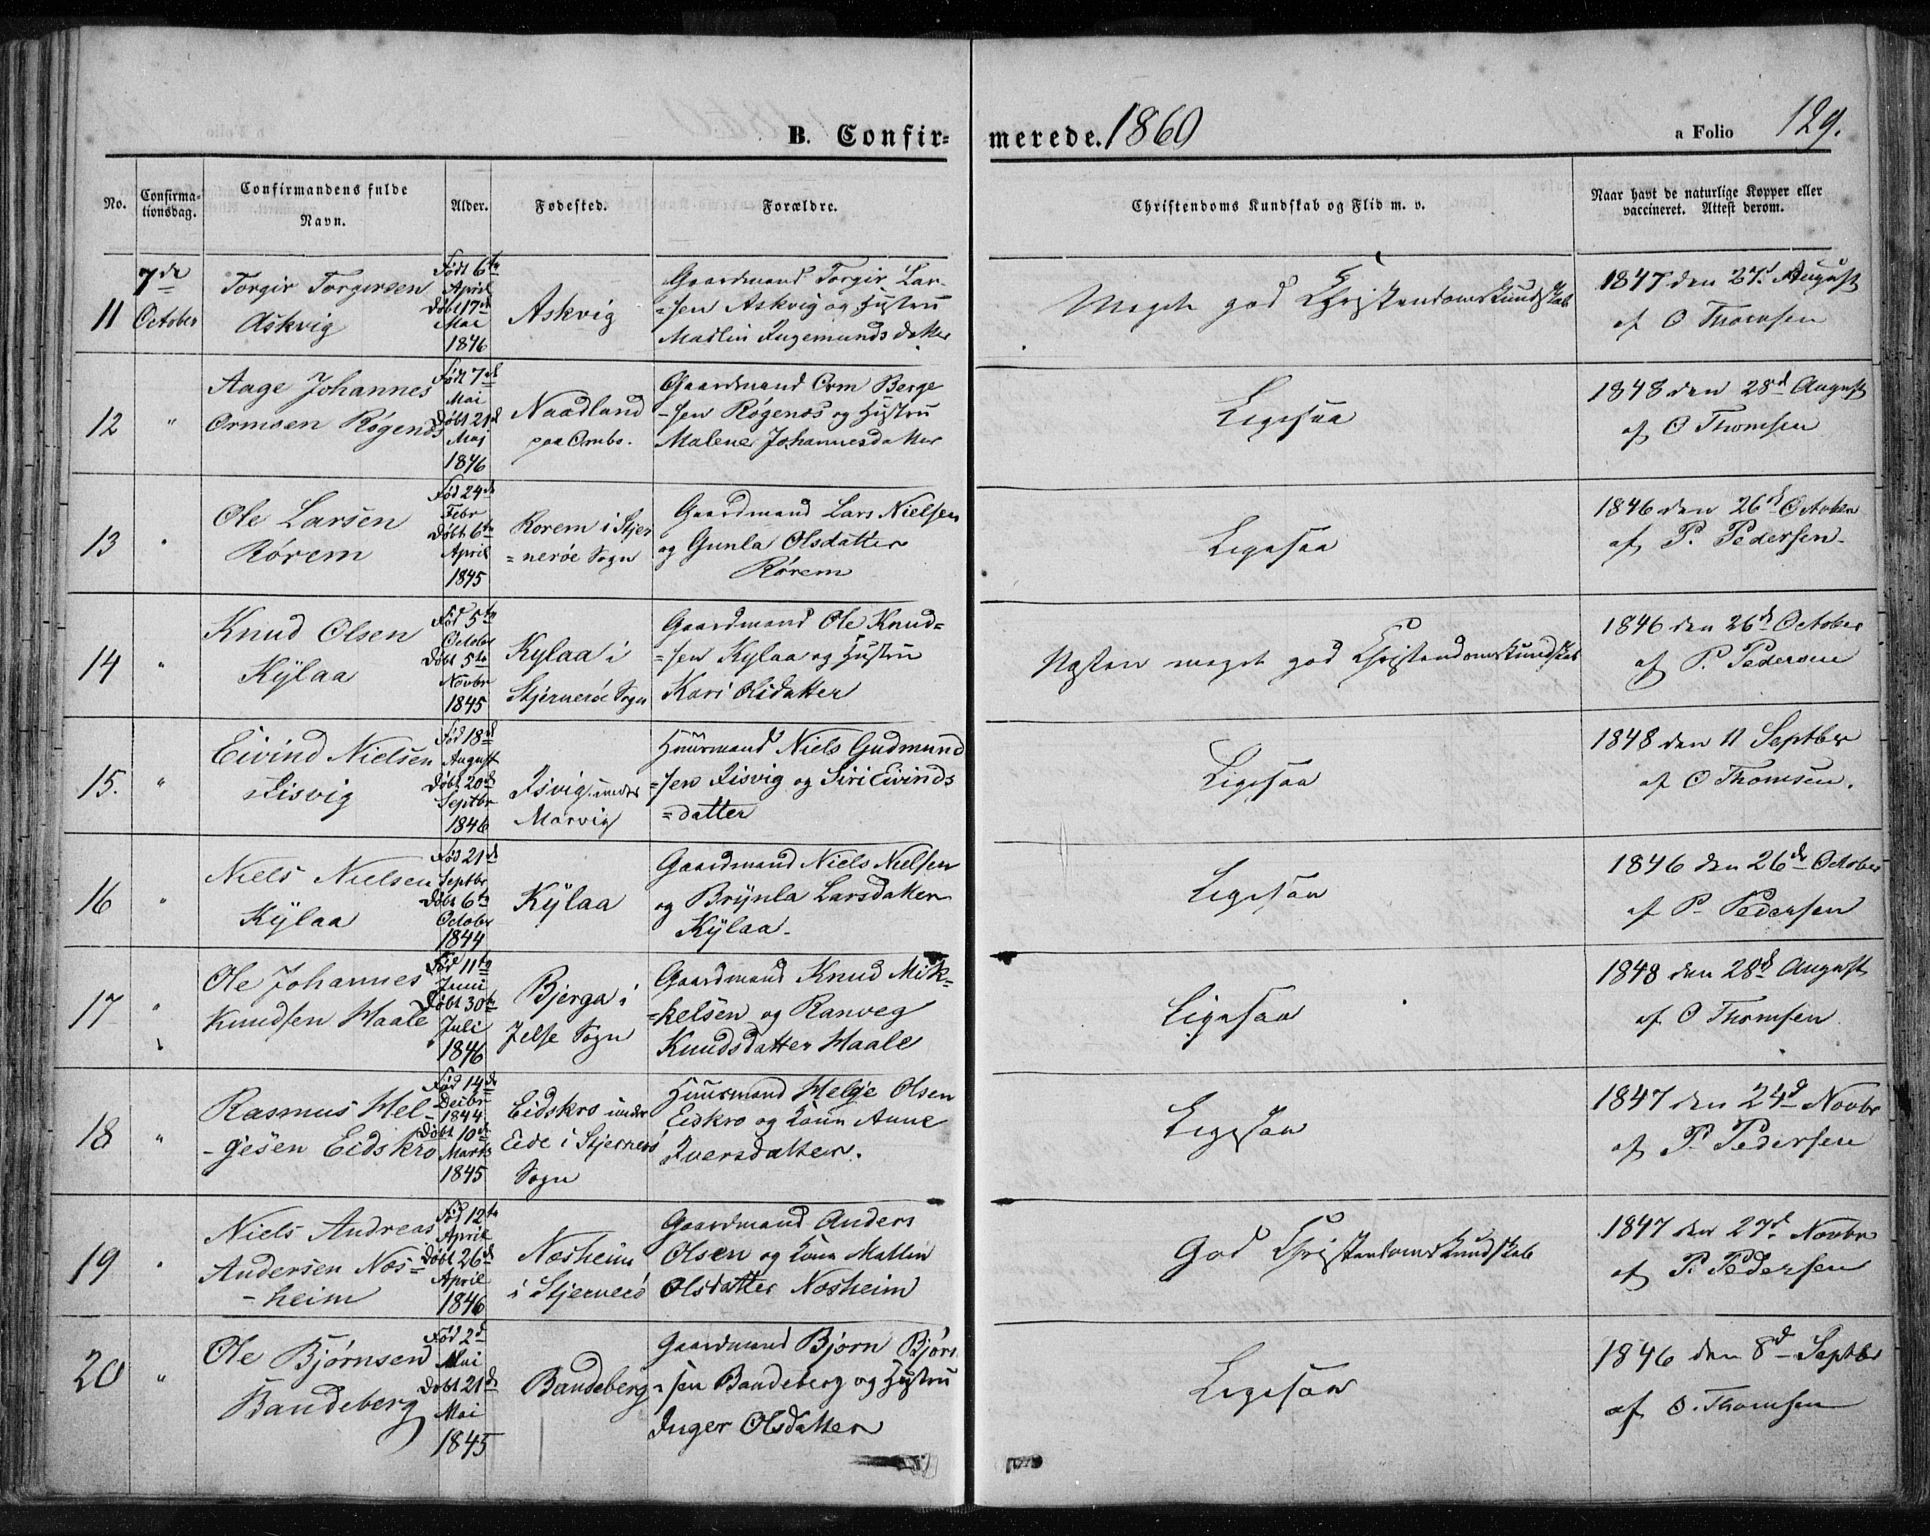 B. Confirmerede. 1860
a Folio 129.
No.
Confirmationsdag.
Confirmandens fulde Navn.
Alder.
Fødested.
Forældre.
Christendoms Kundskab og Flid m. v.
Naar havt de naturlige Kopper eller vaccineret. Attest derom.
11
7de October
Torgir Torgersen
Askvig
Født 6te
April
Døbt 17de
Mai
1846
Askvig
Gaardmand Torgir Lar-
=sen Askvig og Hustru
Madlin Ingemundsdatter
Meget god Christendomskundskab
1847 den 27d August
af O Thomsen
12
"
Aage Johannes
Ormsen Røgenes
Født 7de
Mai
Døbt 21d
Maj
1846
Naadland
paa Ombo.
Gaardmand Orm Berge
-sen Røgenes og Hustru
Malene Johannesdatter
Ligesaa
1848 den 28d August
af O Thomsen
13
"
Ole Larsen
Rørem
Fød 24de
Febr
Døbt 6te
April
1845
Rorem i Stjer
=nerøe Sogn
Gaardmand Lars Nielsen
og Gunla Olsdatter
Rørem
Ligesaa
1846 den 26d October
af P. Pedersen
14
"
Knud Olsen
Kÿlaa
Fød 5te
October
Døbt 5te
Novbr
1845
Kylaa i
Stjernerøe Sogn
Gaardmand Ole Knud=
=sen Kylaa og Hustru
Kari Olsdatter
Næsten meget god Christendomskundskab
1846 den 26d October
af P. Pedersen
15.
"
Eivind Nielsen
Iisvig
Fød 18d
August
Døbt 20d
Septbr
1846
Isvig under
Marvig
Huusmand Niels Gudmund
=sen Iisvig og Siri Eivinds
=datter
Ligesaa
1848 den 11 Septbr
af O Thomsen.
16
"
Niels Nielsen
Kÿlaa
Fød 21d
Septbr
Døbt 6te
October
1844
Kÿlaa
Gaardmand Niels Nielsen
og Brÿnla Larsdatter
Kÿlaa.
Ligesaa
1846 den 26de October
af P. Pedersen
17
"
Ole Johannes
Knudsen Haale
Fød 11te
Juni
Døbt 30te
Juli
1846
Bjerga i
Jelse Sogn
Gaardmand Knud Mik-
-kelsen og Ranveg
Knudsdatter Haale
Ligesaa
1848 den 28d August
af O Thomsen
18
"
Rasmus Hel
-gesen Eidskro
Fød 14de
Decbr
1844
Døbt 10de
Marts
1845
Eidskro under
Eide i Stjernerö
Sogn
Huusmand Helge Olsen
Eidkro og Kone Anne
Iversdatter.
Ligesaa
1847 den 24d Novbr
af P. Pedersen
19
"
Niels Andreas
Andersen Næs=
-heim
Fød 12te
April
Døbt 26d
April
1846
Næsheim
i Stjernerö
Gaardmand Anders
Olsen og Kone Mallin
Olsdatter Næsheim
God Christendomskundskab
1847 den 27d. Novbr
af P. Pedersen
20
"
Ole Bjørnsen
Bandeberg
Fød 2d
Mai
Døbt 21d
Mai
1845
Bandeberg
Gaardmand Bjørn Bjørn
-sen Bandeberg og Hustru
Inger Olsdatter
Ligesaa
1846 den 8d Septbr
af O. Thomsen